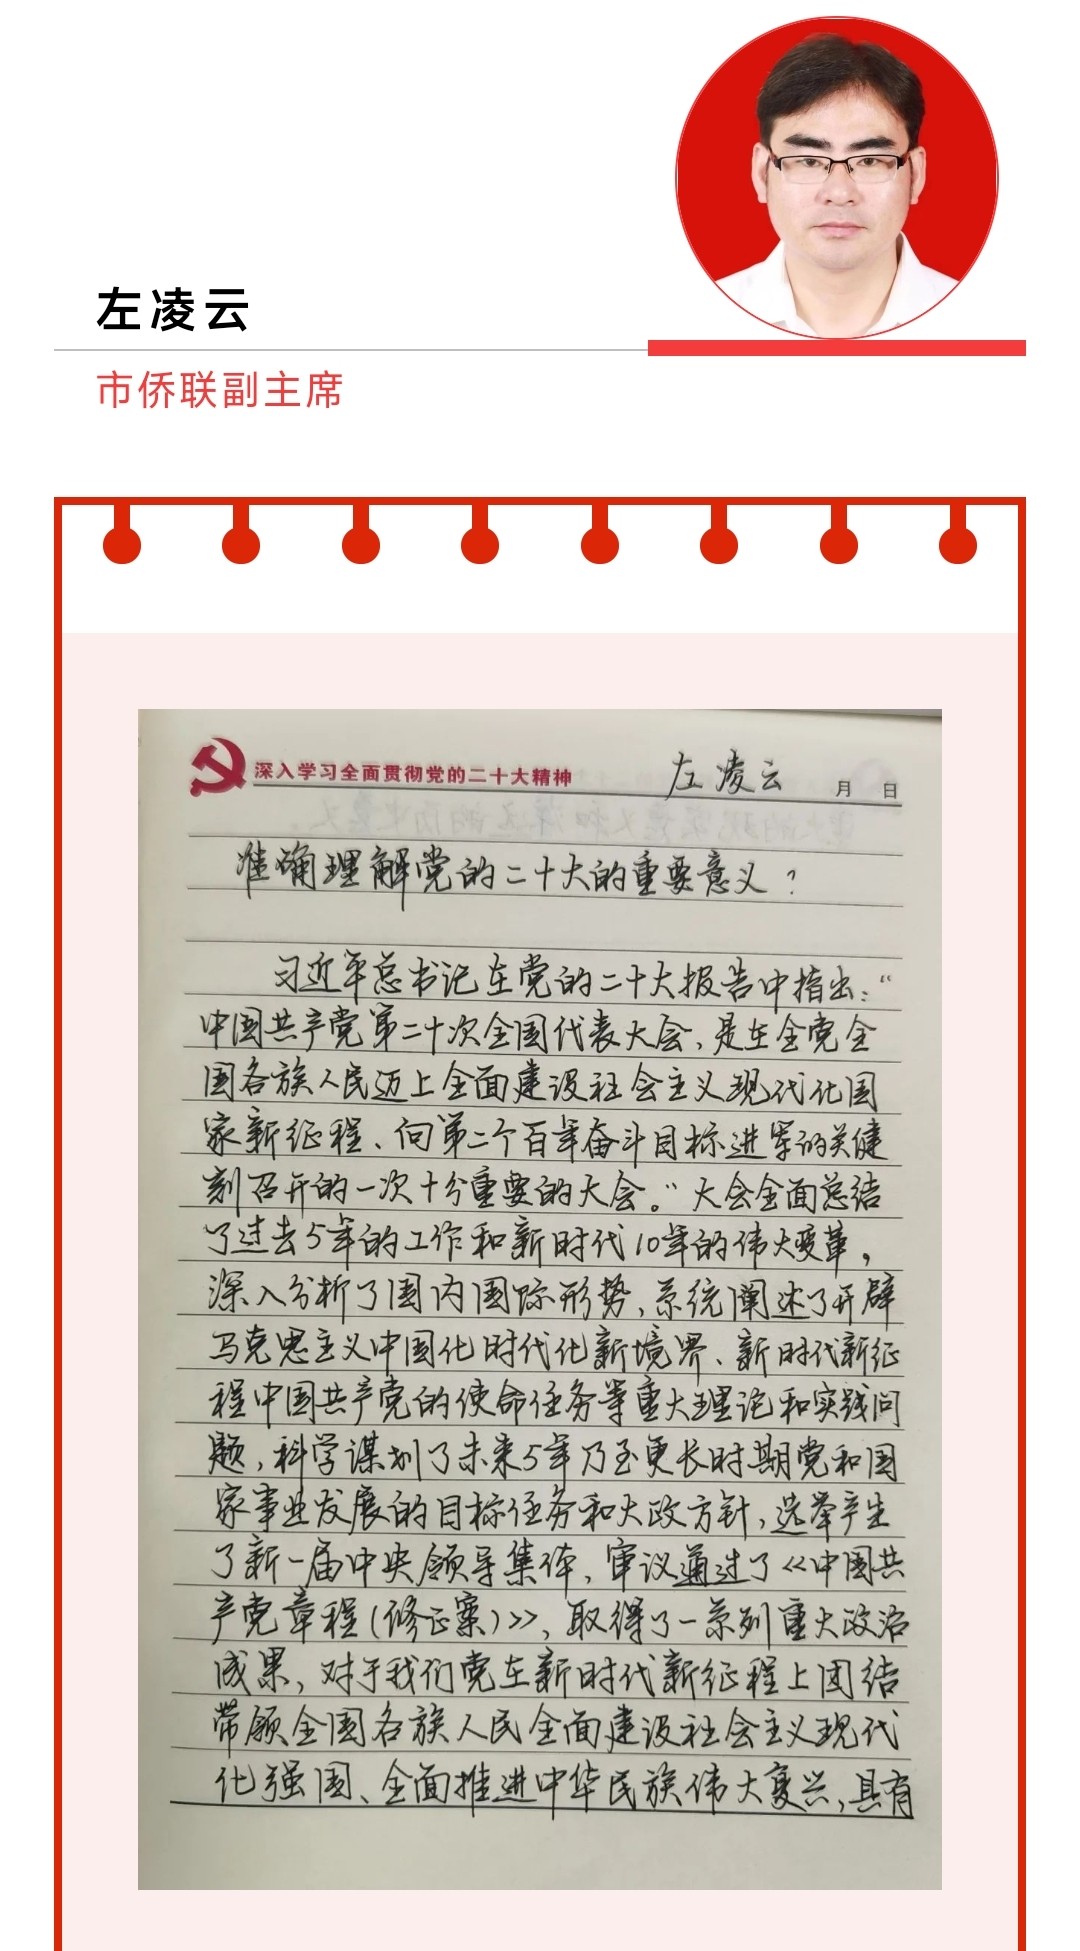 左凌云
市侨联副主席
深入学习全面贯彻党的二十大精神
左凌云
月 日
准确理解党的二十大的重要意义?
习近平总书记在党的二十大报告中指出:“
中国共产党第二十次全国代表大会,是在全党全
国各族人民迈上全面建设社会主义现代化国
家新征程、向第二个百年奋斗目标进军的关健
刻召开的一次十分重要的大会。”大会全面总结
了过去5年的工作和新时代10年的伟大变革,
深入分析了国内国际形势,系统阐述了开辟
马克思主义中国化时代化新境界、新时代新征
程中国共产党的使命任务等重大理论和实践问
题,科学谋划了未来5年乃至更长时期党和国
家事业发展的目标任务和大政方针,选举产生
了新一届中央领导集体,审议通过了《中国共
产党章程(修正案)》,取得了一系列重大政治
成果,对于我们党在新时代新征程上团结
带领全国各族人民全面建设社会主义现代
化强国、全面推进中华民族伟大复兴,具有